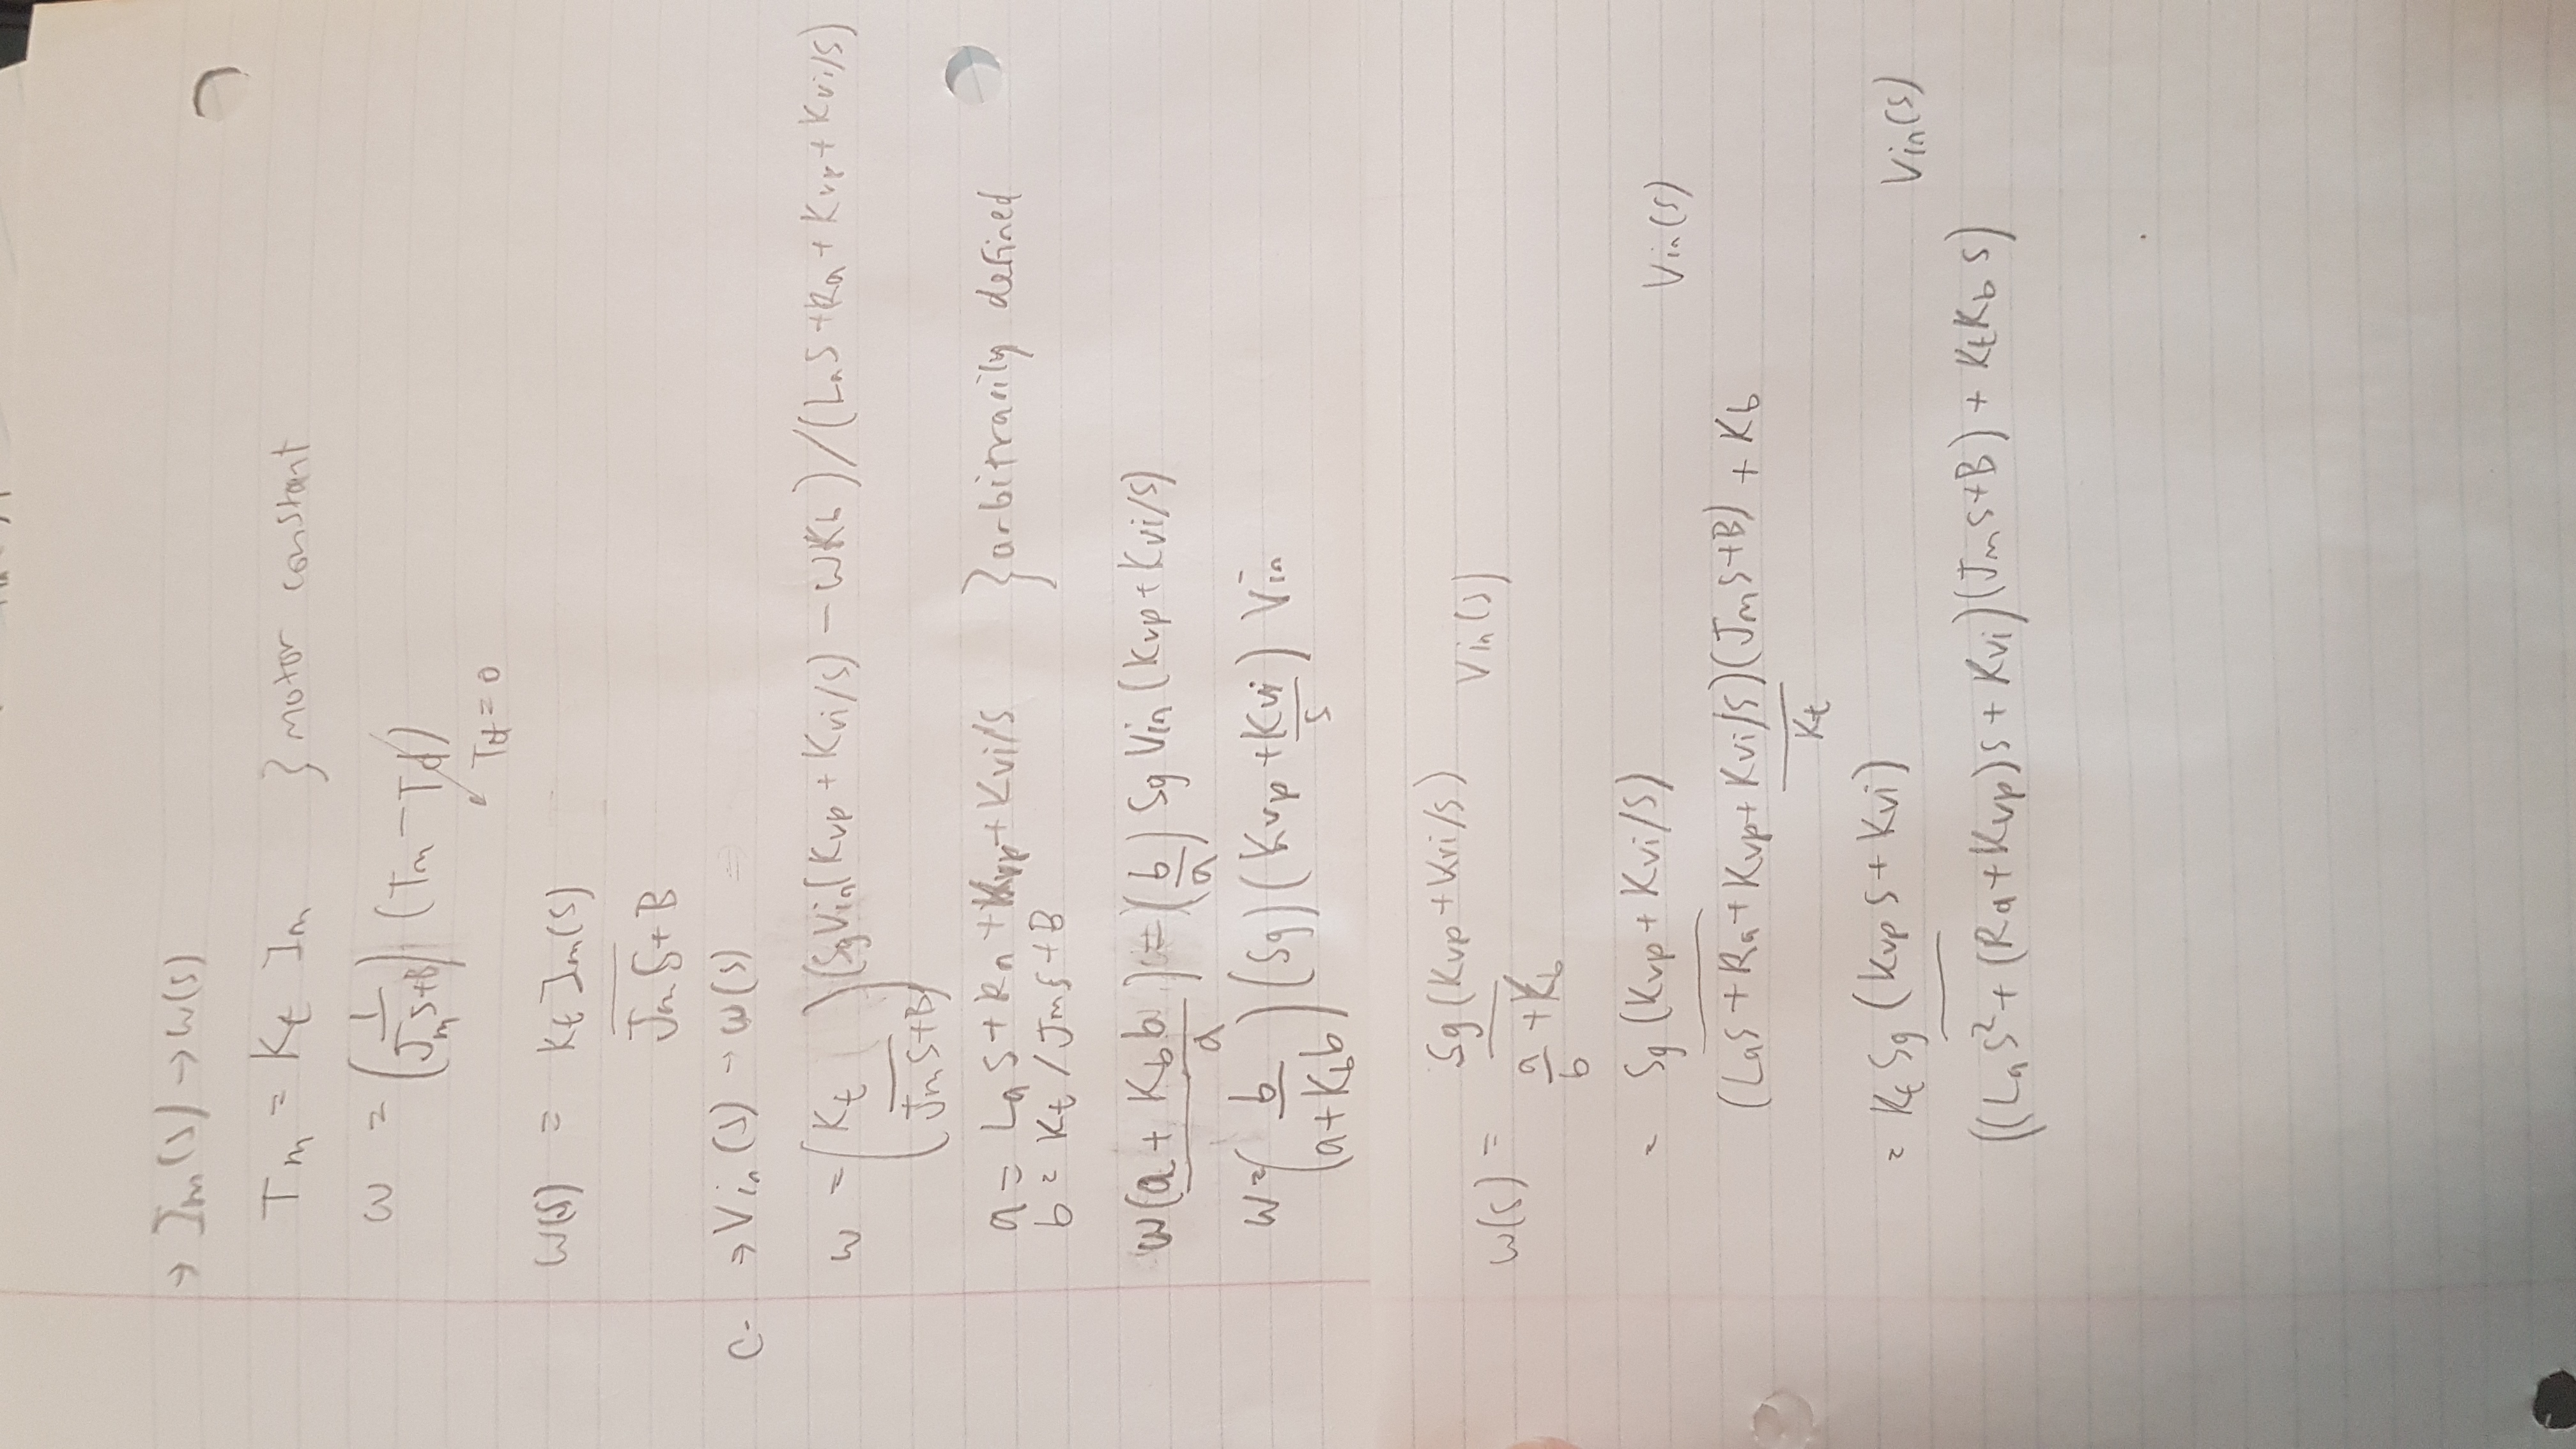 → Im(s) → ω(s)
Tm = Kt Im } motor constant
ω = (1/(Jm s+B)) (Tm − Td)
Td = 0
ω(s) = Kt Im(s)
Jm s + B
C- → Vin(s) → ω(s)
ω = (Kt/(Jm s+B)) (Sg Vin(Kvp + Kvi/s) − ωKb) / (La s + Ra + Kvp + Kvi/s)
a = La s + Ra + Kvp + Kvi/s } arbitrarily defined
b = Kt / Jm s + B
ω((a + Kb b)/a) = (b/a) Sg Vin (Kvp + Kvi/s)
ω = (b/(a+Kb b)) (Sg) (Kvp + Kvi/s) Vin
ω(s) = Sg (Kvp + Kvi/s) Vin(s)
a/b + Kb
= Sg (Kvp + Kvi/s) Vin(s)
(La s + Ra + Kvp + Kvi/s)(Jm s+B) + Kb
Kt
= Kt Sg (Kvp s + Kvi) Vin(s)
((La s² + (Ra + Kvp)s + Kvi)(Jm s+B) + Kt Kb s)